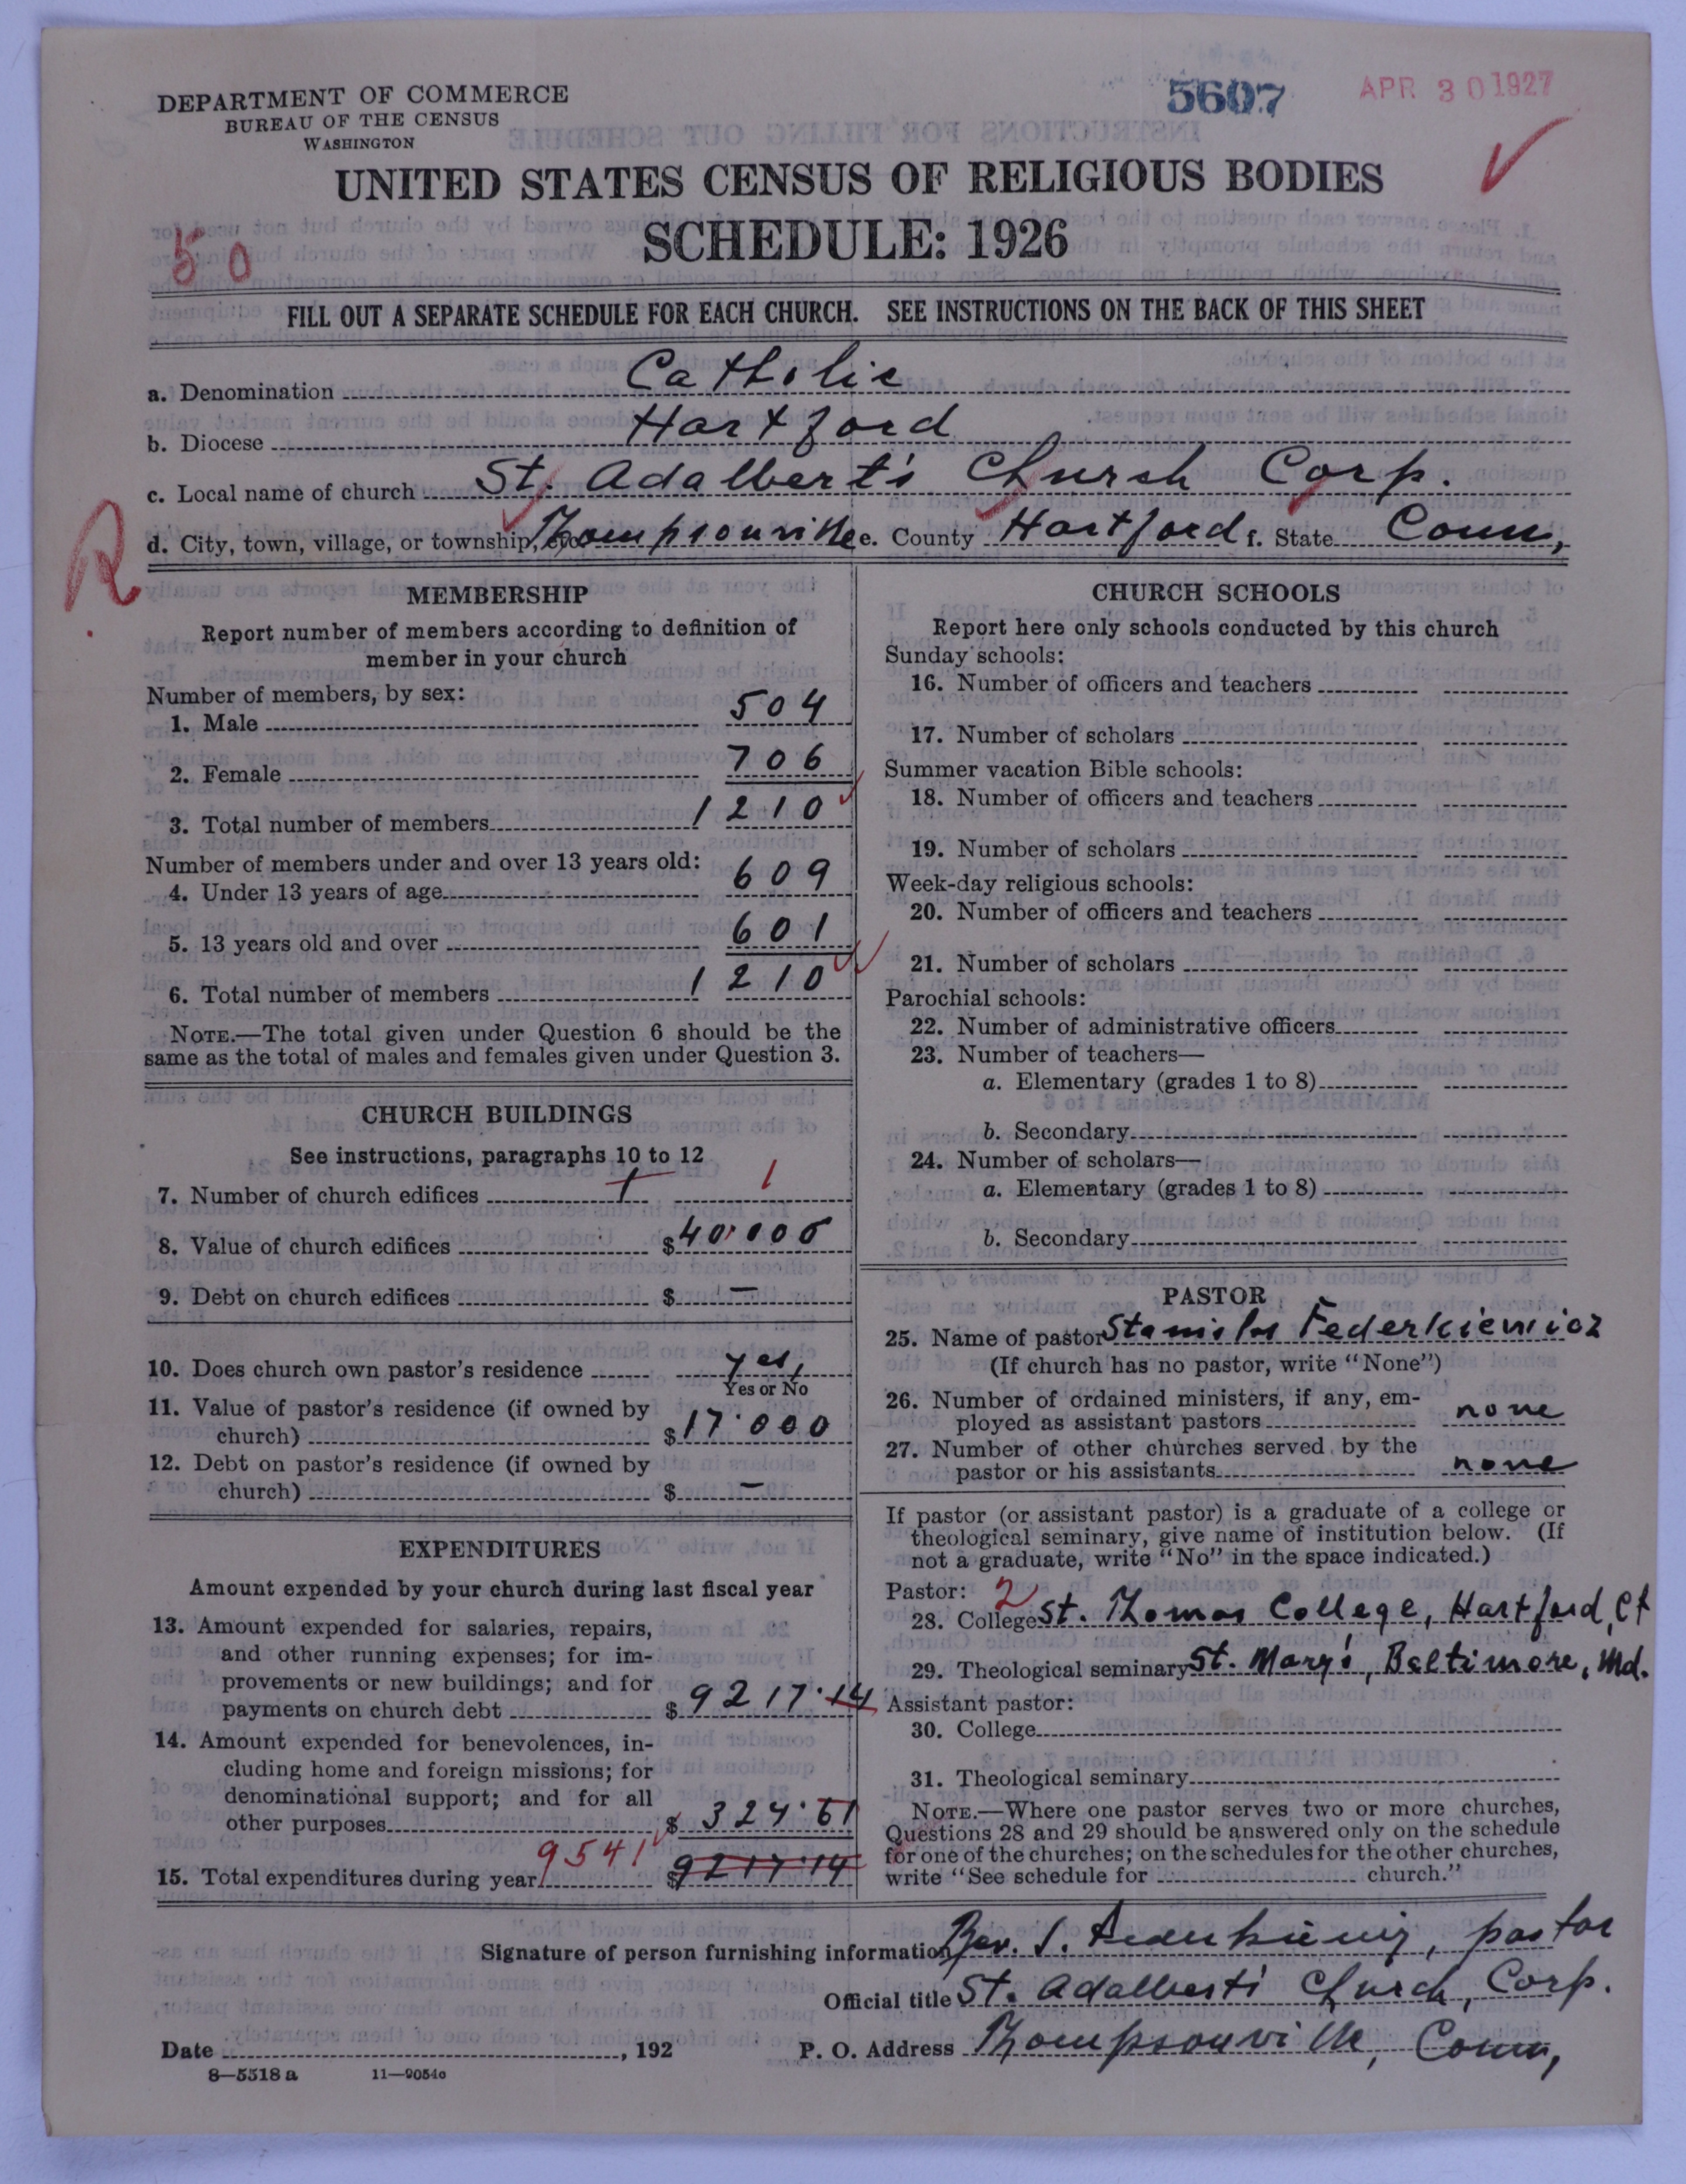 DEPARTMENT OF COMMERCE
BUREAU OF THE CENSUS
WASHINGTON
5607
APR 30 1927
UNITED STATES CENSUS OF RELIGIOUS BODIES
SCHEDULE: 1926
50
FILL OUT A SEPARATE SCHEDULE FOR EACH CHURCH. SEE INSTRUCTIONS ON THE BACK OF THIS SHEET
a. Denomination Catholic
b. Diocese Hartford
c. Local name of church St. Adalbert's Church Corp.
d. City, town, village, or township, etc. Thompsonville e. County Hartford f. State Conn,
R
MEMBERSHIP
Report number of members according to definition of
member in your church
Number of members, by sex:
1. Male 504
2. Female 706
3. Total number of members 1210
Number of members under and over 13 years old:
4. Under 13 years of age 609
5. 13 years old and over 601
6. Total number of members 1210
NOTE.—The total given under Question 6 should be the
same as the total of males and females given under Question 3.
CHURCH BUILDINGS
See instructions, paragraphs 10 to 12
7. Number of church edifices 1 1
8. Value of church edifices $40.000
9. Debt on church edifices $ —
10. Does church own pastor's residence yes,
Yes or No
11. Value of pastor's residence (if owned by
church) $17.000
12. Debt on pastor's residence (if owned by
church) $ —
EXPENDITURES
Amount expended by your church during last fiscal year
13. Amount expended for salaries, repairs,
and other running expenses; for im-
provements or new buildings; and for
payments on church debt $9217.14
14. Amount expended for benevolences, in-
cluding home and foreign missions; for
denominational support; and for all
other purposes $324.61
9541
15. Total expenditures during year $9217.14
CHURCH SCHOOLS
Report here only schools conducted by this church
Sunday schools:
16. Number of officers and teachers
17. Number of scholars
Summer vacation Bible schools:
18. Number of officers and teachers
19. Number of scholars
Week-day religious schools:
20. Number of officers and teachers
21. Number of scholars
Parochial schools:
22. Number of administrative officers
23. Number of teachers—
a. Elementary (grades 1 to 8)
b. Secondary
24. Number of scholars—
a. Elementary (grades 1 to 8)
b. Secondary
PASTOR
25. Name of pastor Stanislas Federkiewicz
(If church has no pastor, write "None")
26. Number of ordained ministers, if any, em-
ployed as assistant pastors none
27. Number of other churches served by the
pastor or his assistants none
If pastor (or assistant pastor) is a graduate of a college or
theological seminary, give name of institution below. (If
not a graduate, write "No" in the space indicated.)
Pastor: 2
28. College St. Thomas College, Hartford, Ct
29. Theological seminary St. Mary's, Baltimore, Md.
Assistant pastor:
30. College
31. Theological seminary
NOTE.—Where one pastor serves two or more churches,
Questions 28 and 29 should be answered only on the schedule
for one of the churches; on the schedules for the other churches,
write "See schedule for church."
Signature of person furnishing information Rev. S. Federkiewicz, pastor
Official title St. Adalbert's Church, Corp.
Date , 192 P. O. Address Thompsonville, Conn,
8—5518 a 11—9054a